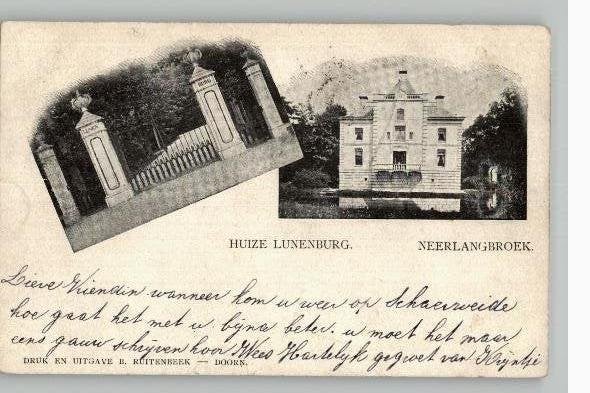 LUNEN
BURG
HUIZE LUNENBURG.
NEERLANGBROEK.
Lieve Vriendin wanneer kom u weer op Schaerweide
hoe gaat het met u, bijna beter. u moet het maar
eens gauw schrijven hoor Wees Hartelijk gegroet van Krijntje
DRUK EN UITGAVE B. RUITENBEEK — DOORN.